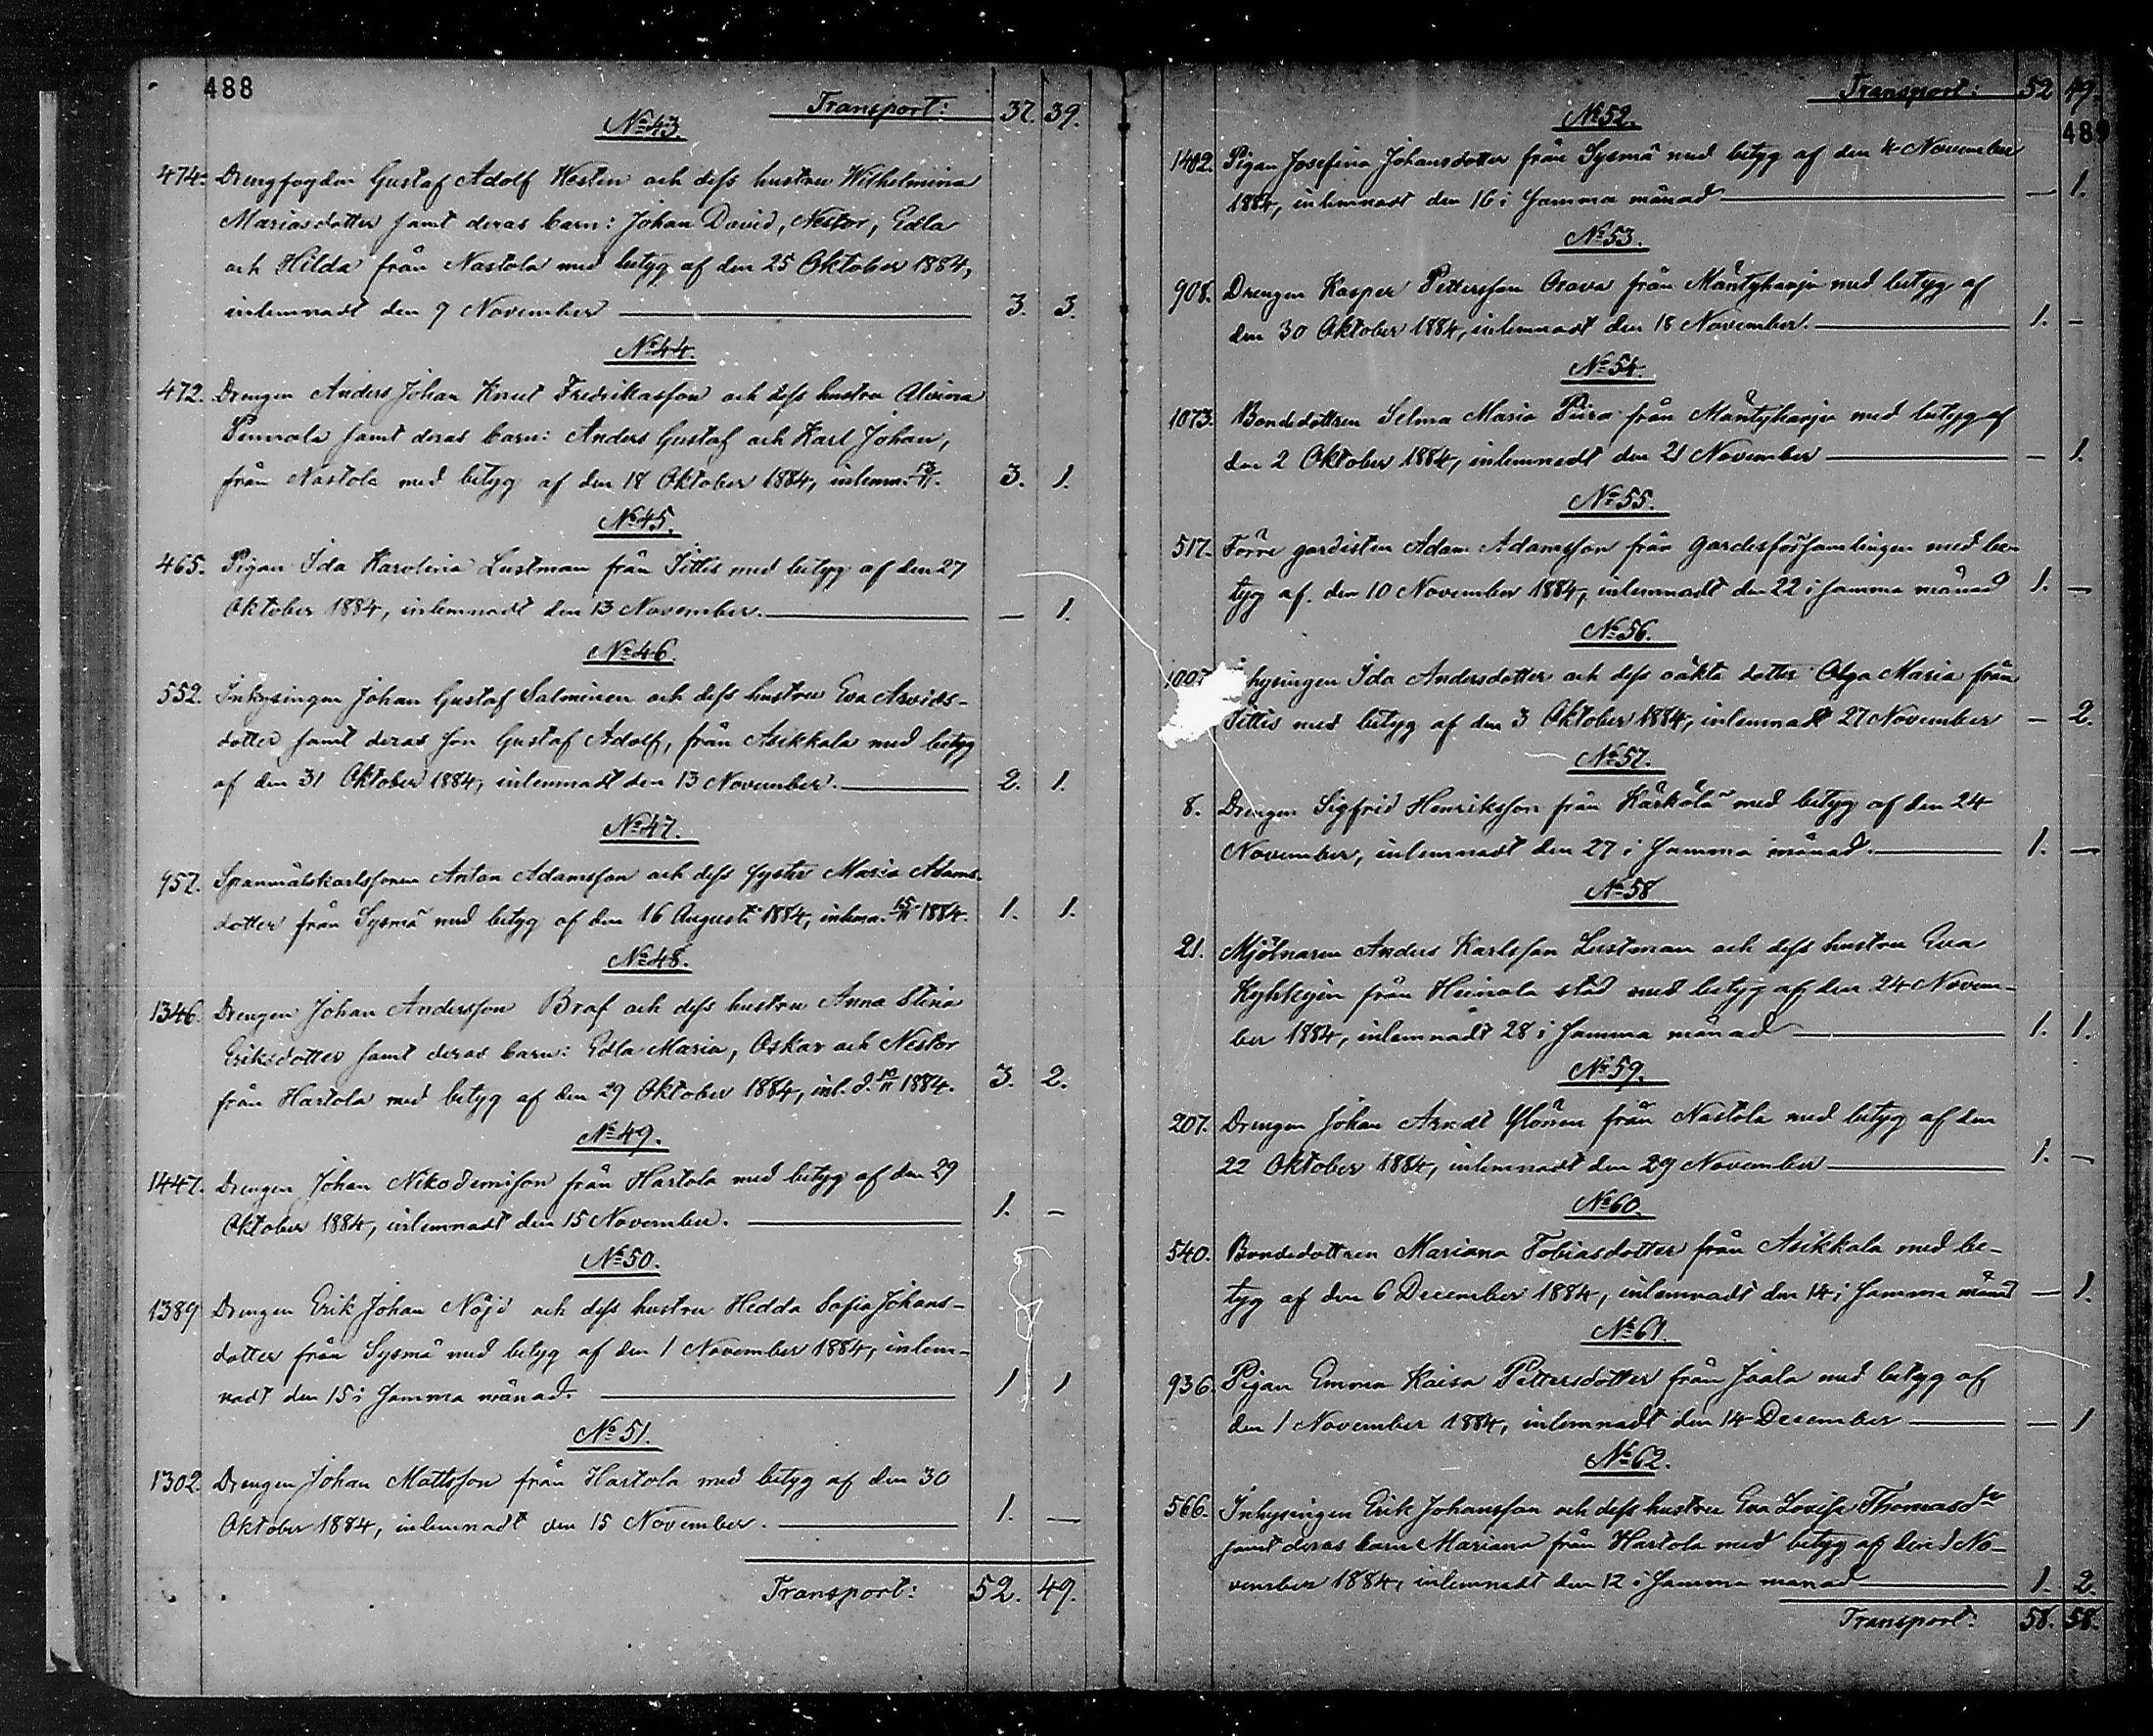 488
Transport: 37. 39.
No 43.
474. Drengfogden Gustaf Adolf Westin och dess hustru Wilhelmina
Mariasdotter samt deras barn: Johan David, Nestor, Edla
och Hilda från Nastola med betyg af den 25 Oktober 1884,
inlemnadt den 9 November 3. 3.
No 44.
472. Drengen Anders Johan Knut Fredriksson och dess hustru Alvina
samt deras barn: Anders Gustaf och Karl Johan,
från Nastola med betyg af den 18 Oktober 1884, inlemn. 13/11. 3. 1.
No 45.
465. Pigan Ida Karolina Lustman från Iittis med betyg af den 27
Oktober 1884, inlemnadt den 13 November. — 1.
No 46.
552. Inhysingen Johan Gustaf Salminen och dess hustru Eva Arvids-
dotter samt deras son Gustaf Adolf, från Asikkala med betyg
af den 31 Oktober 1884, inlemnadt den 13 November. 2. 1.
No 47.
957. Spanmålskarlssonen Anton Adamsson och dess syster Maria Adams-
dotter från Sysmä med betyg af den 16 Augusti 1884, inlemn. 15/11 1884. 1. 1.
No 48.
1346. Drengen Johan Andersson Braf och dess hustru Anna Stina
Eriksdotter samt deras barn: Edla Maria, Oskar och Nestor
från Hartola med betyg af den 29 Oktober 1884, inl. d. /11 1884. 3. 2.
No 49.
1447. Drengen Johan Nikodemisson från Hartola med betyg af den 29
Oktober 1884, inlemnadt den 15 November. 1. —
No 50.
1389 Drengen Erik Johan Nöjd och dess hustru Hedda Sofia Johans-
dotter från Sysmä med betyg af den 1 November 1884, inlem-
nadt den 15 i samma månad. 1 1
No 51.
1302. Drengen Johan Mattsson från Hartola med betyg af den 30
Oktober 1884, inlemnadt den 15 November. 1. —
Transport: 52. 49.
Transport: 52 49.
489
No 52.
1482. Pigan Josefina Johansdotter från Sysmä med betyg af den 4 November
1884, inlemnadt den 16 i samma månad — 1.
No 53.
908. Drengen Kasper Pettersson Orava från Mäntyharju med betyg af
den 30 Oktober 1884, inlemnadt den 18 November. 1. —
No 54.
1073. Bondedottren Selma Maria Piira från Mäntyharju med betyg af
den 2 Oktober 1884, inlemnadt den 21 November — 1.
No 55.
517. Förre gardisten Adam Adamsson från Gardesförsamlingen med be-
tyg af den 10 November 1884, inlemnadt den 22 i samma månad 1. —
No 56.
hysingen Ida Andersdotter och dess oäkta dotter Olga Maria från
Iittis med betyg af den 3 Oktober 1884, inlemnadt 27 November — 2.
No 57.
8. Drengen Sigfrid Henriksson från Kärkölä med betyg af den 24
November, inlemnadt den 27 i samma månad. 1. —
No 58
21. Mjölnaren Anders Karlsson Lustman och dess hustru Eva
från Heinola stad med betyg af den 24 Novem-
ber 1884, inlemnadt 28 i samma månad 1. 1.
No 59.
207. Drengen Johan Arndt Ylönen från Nastola med betyg af den
22 Oktober 1884, inlemnadt den 29 November 1. —
No 60.
540. Bondedottren Mariana Tobiasdotter från Asikkala med be-
tyg af den 6 December 1884, inlemnadt den 14 i samma månad — 1.
No 61.
936. Pigan Emma Kaisa Pettersdotter från Jaala med betyg af
den 1 November 1884, inlemnadt den 14 December — 1
No 62.
566. Inhysingen Erik Johansson och dess hustru Eva Lovisa Thomasdr
samt deras barn Mariana från Hartola med betyg af den 1 No-
vember 1884, inlemnadt den 12 i samma månad 1. 2.
Transport: 58. 58.